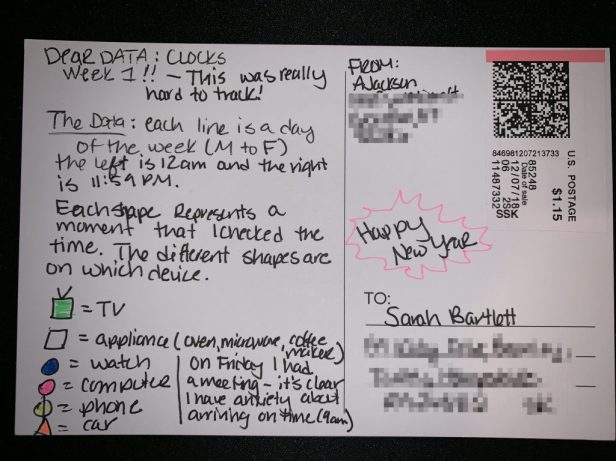 Dear DATA: CLOCKS
Week 1!! - This was really
hard to track!
The Data: each line is a day
of the week (M to F)
the left is 12am and the right
is 11:59 PM.
Each shape Represents a
moment that I checked the
time. The different shapes are
on which device.
= TV
= appliance (oven, microwave, coffee
maker)
= watch
= computer
= phone
= car
on Friday I had
a meeting - it's clear
I have anxiety about
arriving on time (9am)
FROM:
AJackson
Happy
New Year
TO:
Sarah Bartlett
846981207213733
85248
Date of sale
12/07/18
06 2S
11487332
SSK
U.S. POSTAGE
$1.15